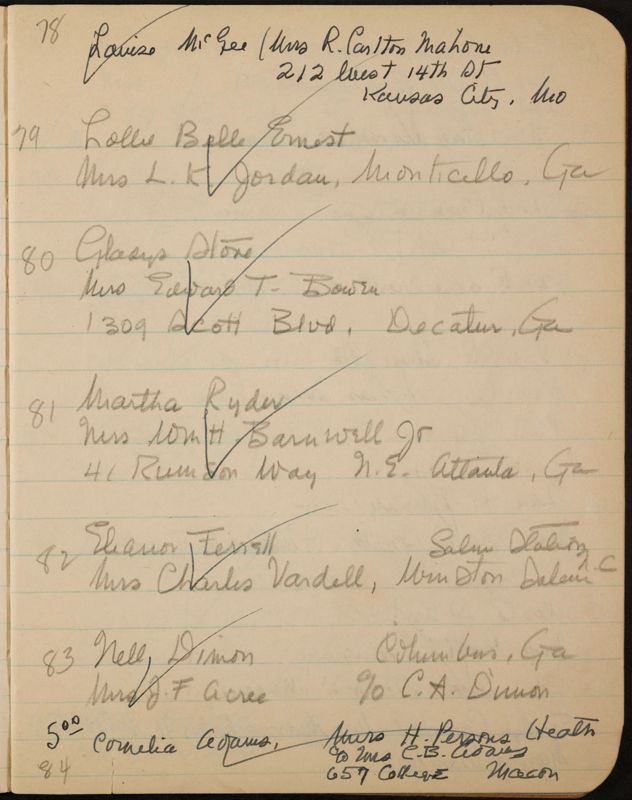 78
Louise McGee (Mrs R. Carlton Mahone
212 West 14th St
Kansas City, Mo
79 Lollie Belle Ernest
Mrs L. K. Jordan, Monticello, Ga
80 Gladys Stone
Mrs Edward T. Bowen
1309 Scott Blvd, Decatur, Ga
81 Martha Ryder
Mrs Wm H. Barnwell Jr
41 Way N.E. Atlanta, Ga
82 Eleanor Ferrell Salem Station
Mrs Charles Vardell, Winston Salem N.C
83 Nell Dimon Columbus, Ga
Mrs J. F Acree c/o C. A. Dimon
5 00 Cornelia Adams, Mrs H. Persons Heath
c/o Mrs C. B. Adams
84 657 College Macon